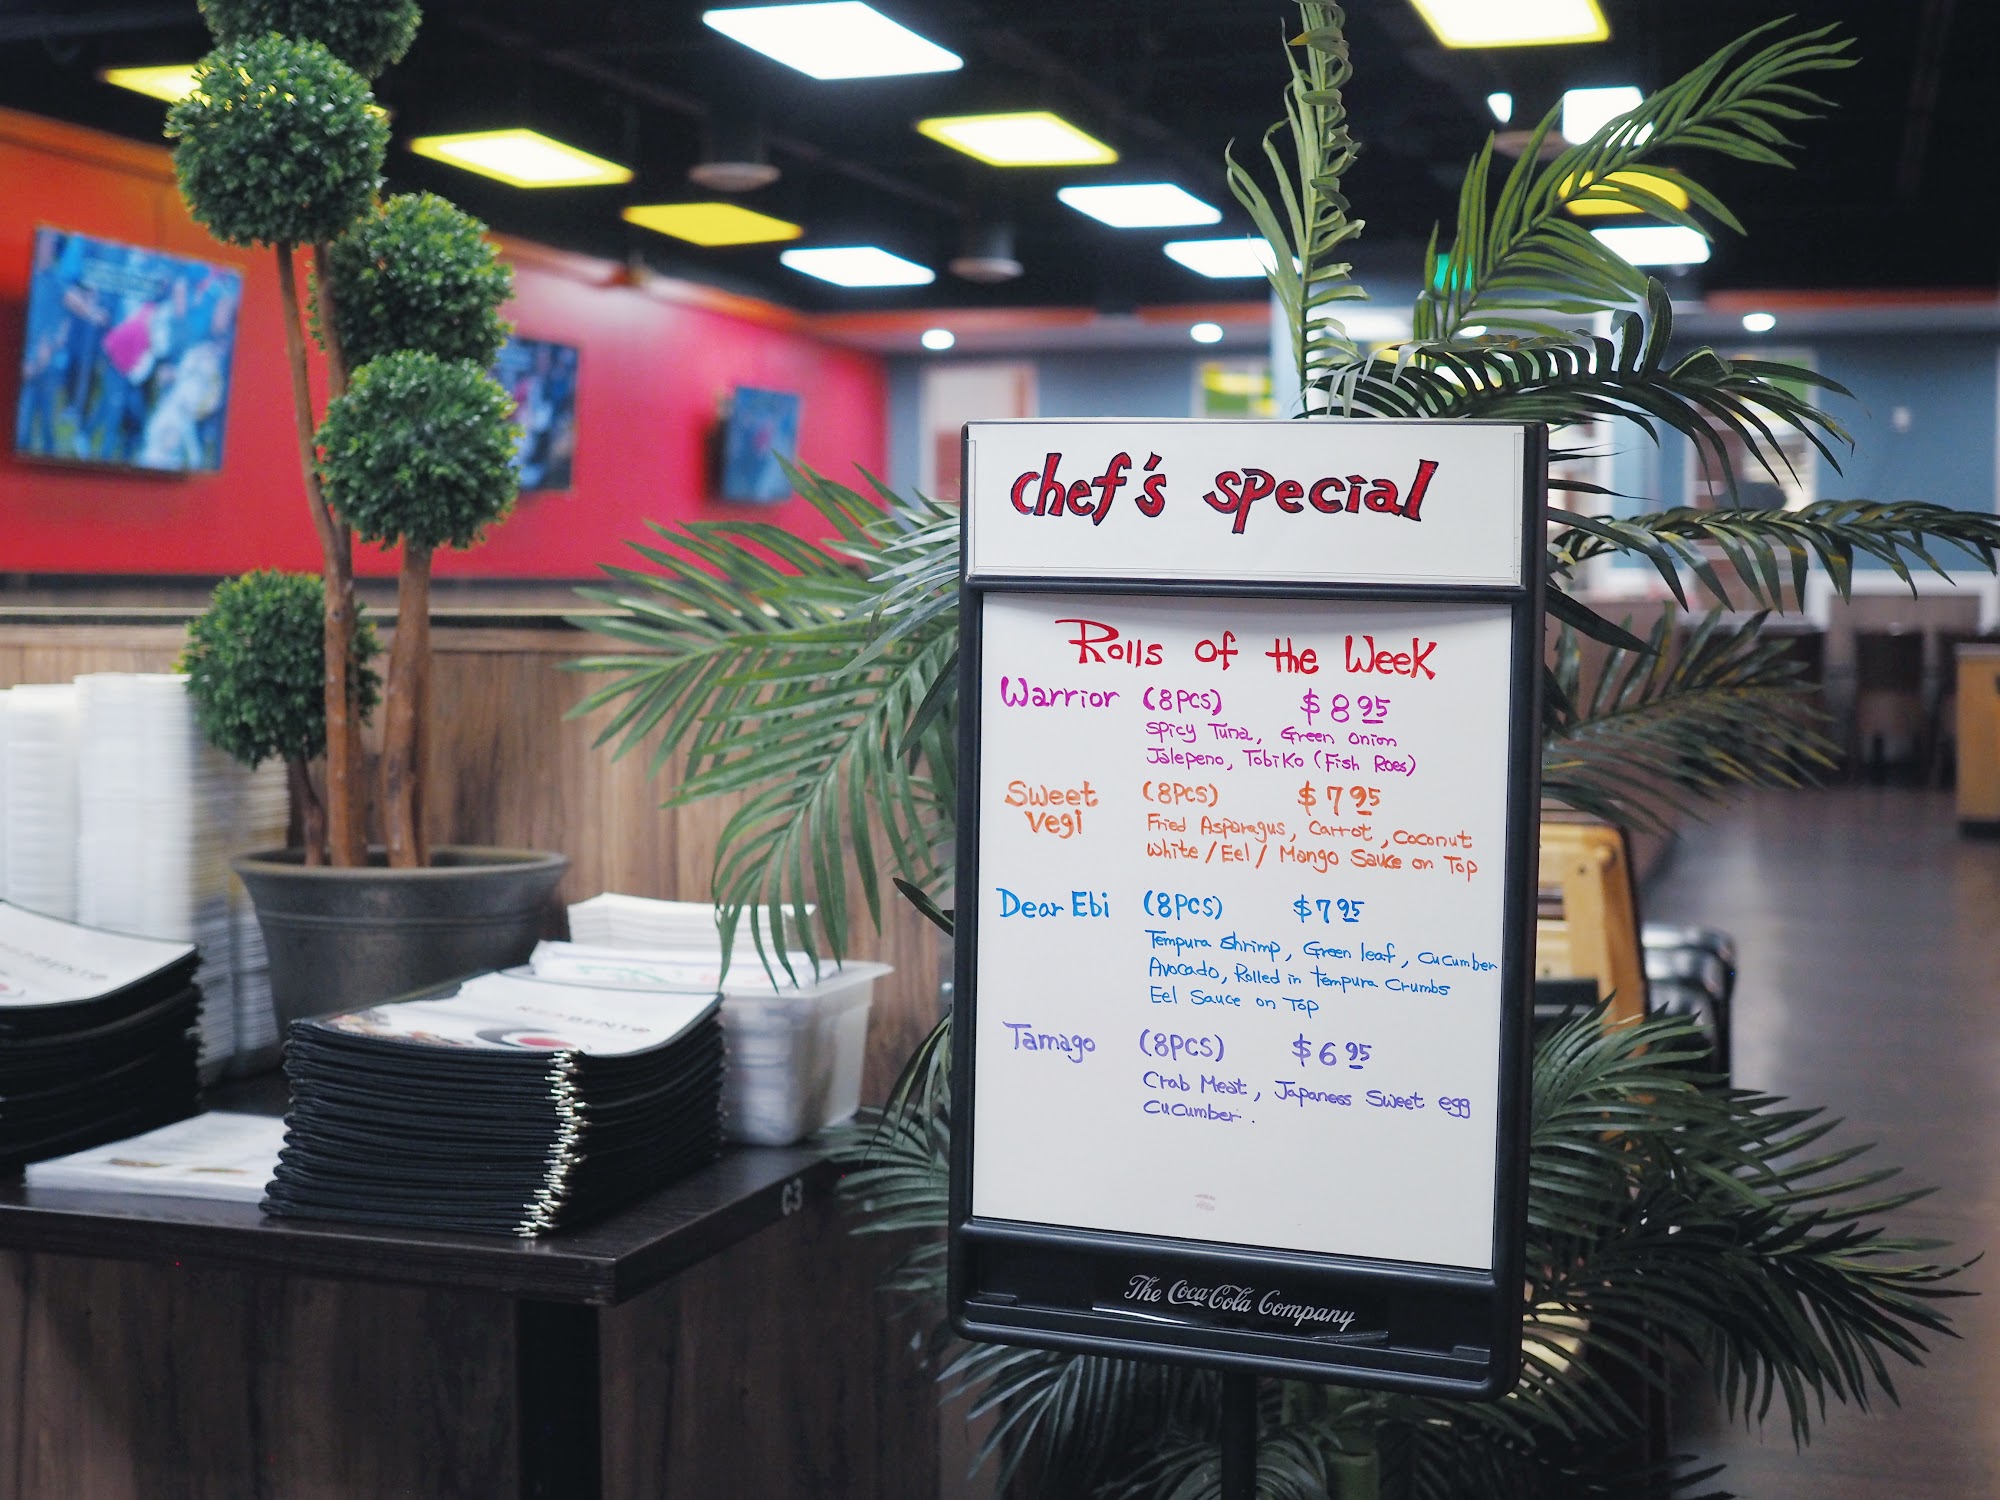 chef's special
Rolls of the Week
Warrior (8PCS) $8 95
Spicy Tuna, Green onion
Jalepeno, Tobiko (Fish Roes)
Sweet Vegi (8PCS) $7 95
Fried Asparagus, Carrot, Coconut
White / Eel / Mango Sauce on Top
Dear Ebi (8PCS) $7 95
Tempura Shrimp, Green leaf, Cucumber
Avocado, Rolled in Tempura Crumbs
Eel Sauce on Top
Tamago (8PCS) $6 95
Crab Meat, Japaness Sweet egg
Cucumber.
The Coca-Cola Company
C3